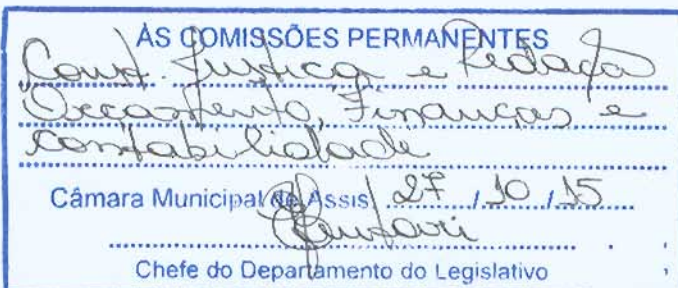 ÀS COMISSÕES PERMANENTES
Const. Justiça e Redação
Orçamento, Finanças e
Contabilidade
Câmara Municipal de Assis 27 / 10 / 15
Chefe do Departamento do Legislativo